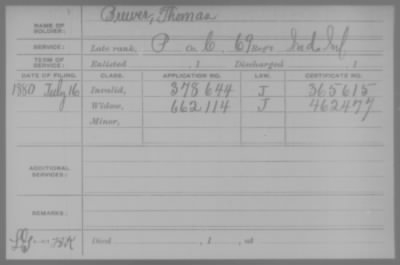 NAME OF SOLDIER: Brewer, Thomas
SERVICE: Late rank, P Co. C, 69 Reg't Ind. Inf
TERM OF SERVICE: Enlisted , 1 Discharged , 1
DATE OF FILING. CLASS. APPLICATION NO. LAW. CERTIFICATE NO.
1880 July 16 Invalid, 378644 J 365615
Widow, 662114 J 462477
Minor,
ADDITIONAL SERVICES:
REMARKS:
Died , 1 , at